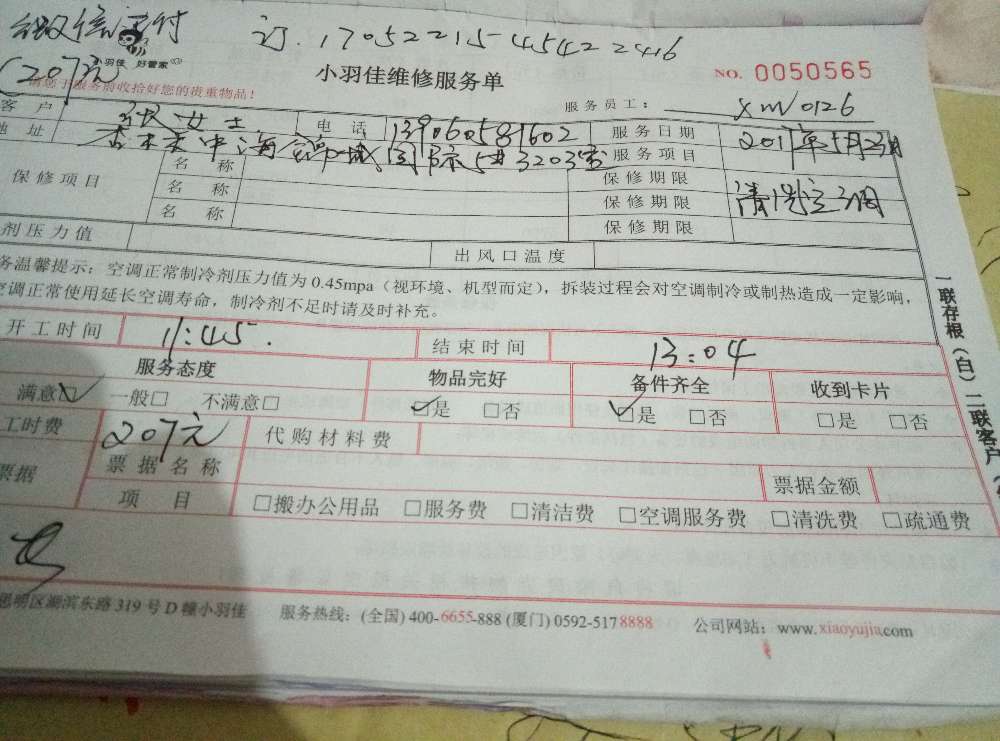 微信支付
订.17052215454222416
(207元
羽佳 好管家
小羽佳维修服务单
NO. 0050565
请您于服务前收拾好您的贵重物品!
服务员工: XMV0126
客 户 张女士 电 话 139060581602 服务日期 2017年5月23日
地 址 国际 3203室 服务项目 清洗空调
保修项目 名 称 保修期限
名 称 保修期限
名 称 保修期限
剂压力值 出风口温度
务温馨提示:空调正常制冷剂压力值为0.45mpa(视环境、机型而定),拆装过程会对空调制冷或制热造成一定影响,
空调正常使用延长空调寿命,制冷剂不足时请及时补充。
开工时间 11:45. 结束时间 13:04
服务态度 物品完好 备件齐全 收到卡片
满意☑ 一般□ 不满意□ ☑是 □否 ☑是 □否 □是 □否
工时费 207元 代购材料费
票据 票据名称 票据金额
项 目 □搬办公用品 □服务费 □清洁费 □空调服务费 □清洗费 □疏通费
思明区湖滨东路319号D幢小羽佳 服务热线:(全国)400-6655-888(厦门)0592-5178888 公司网站:www.xiaoyujia.com
一联存根(白)二联客户